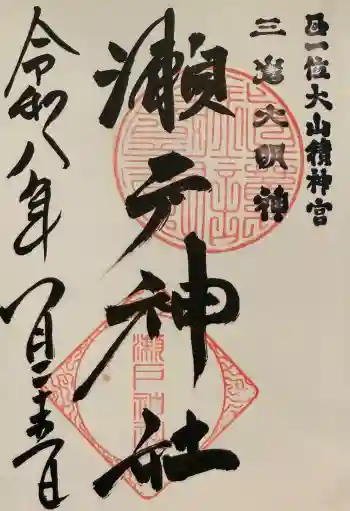 正一位大山積神宮
三島大明神
瀬戸神社
令和八年一月二十五日